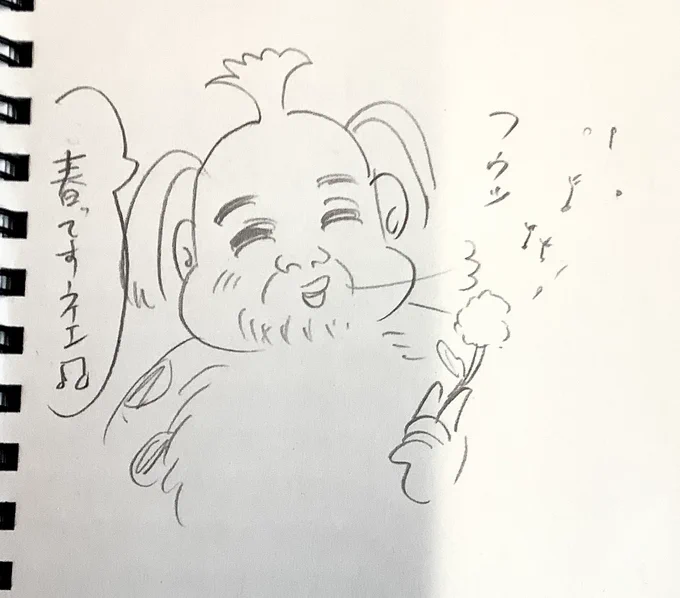 フウッ
春ですネエ♫